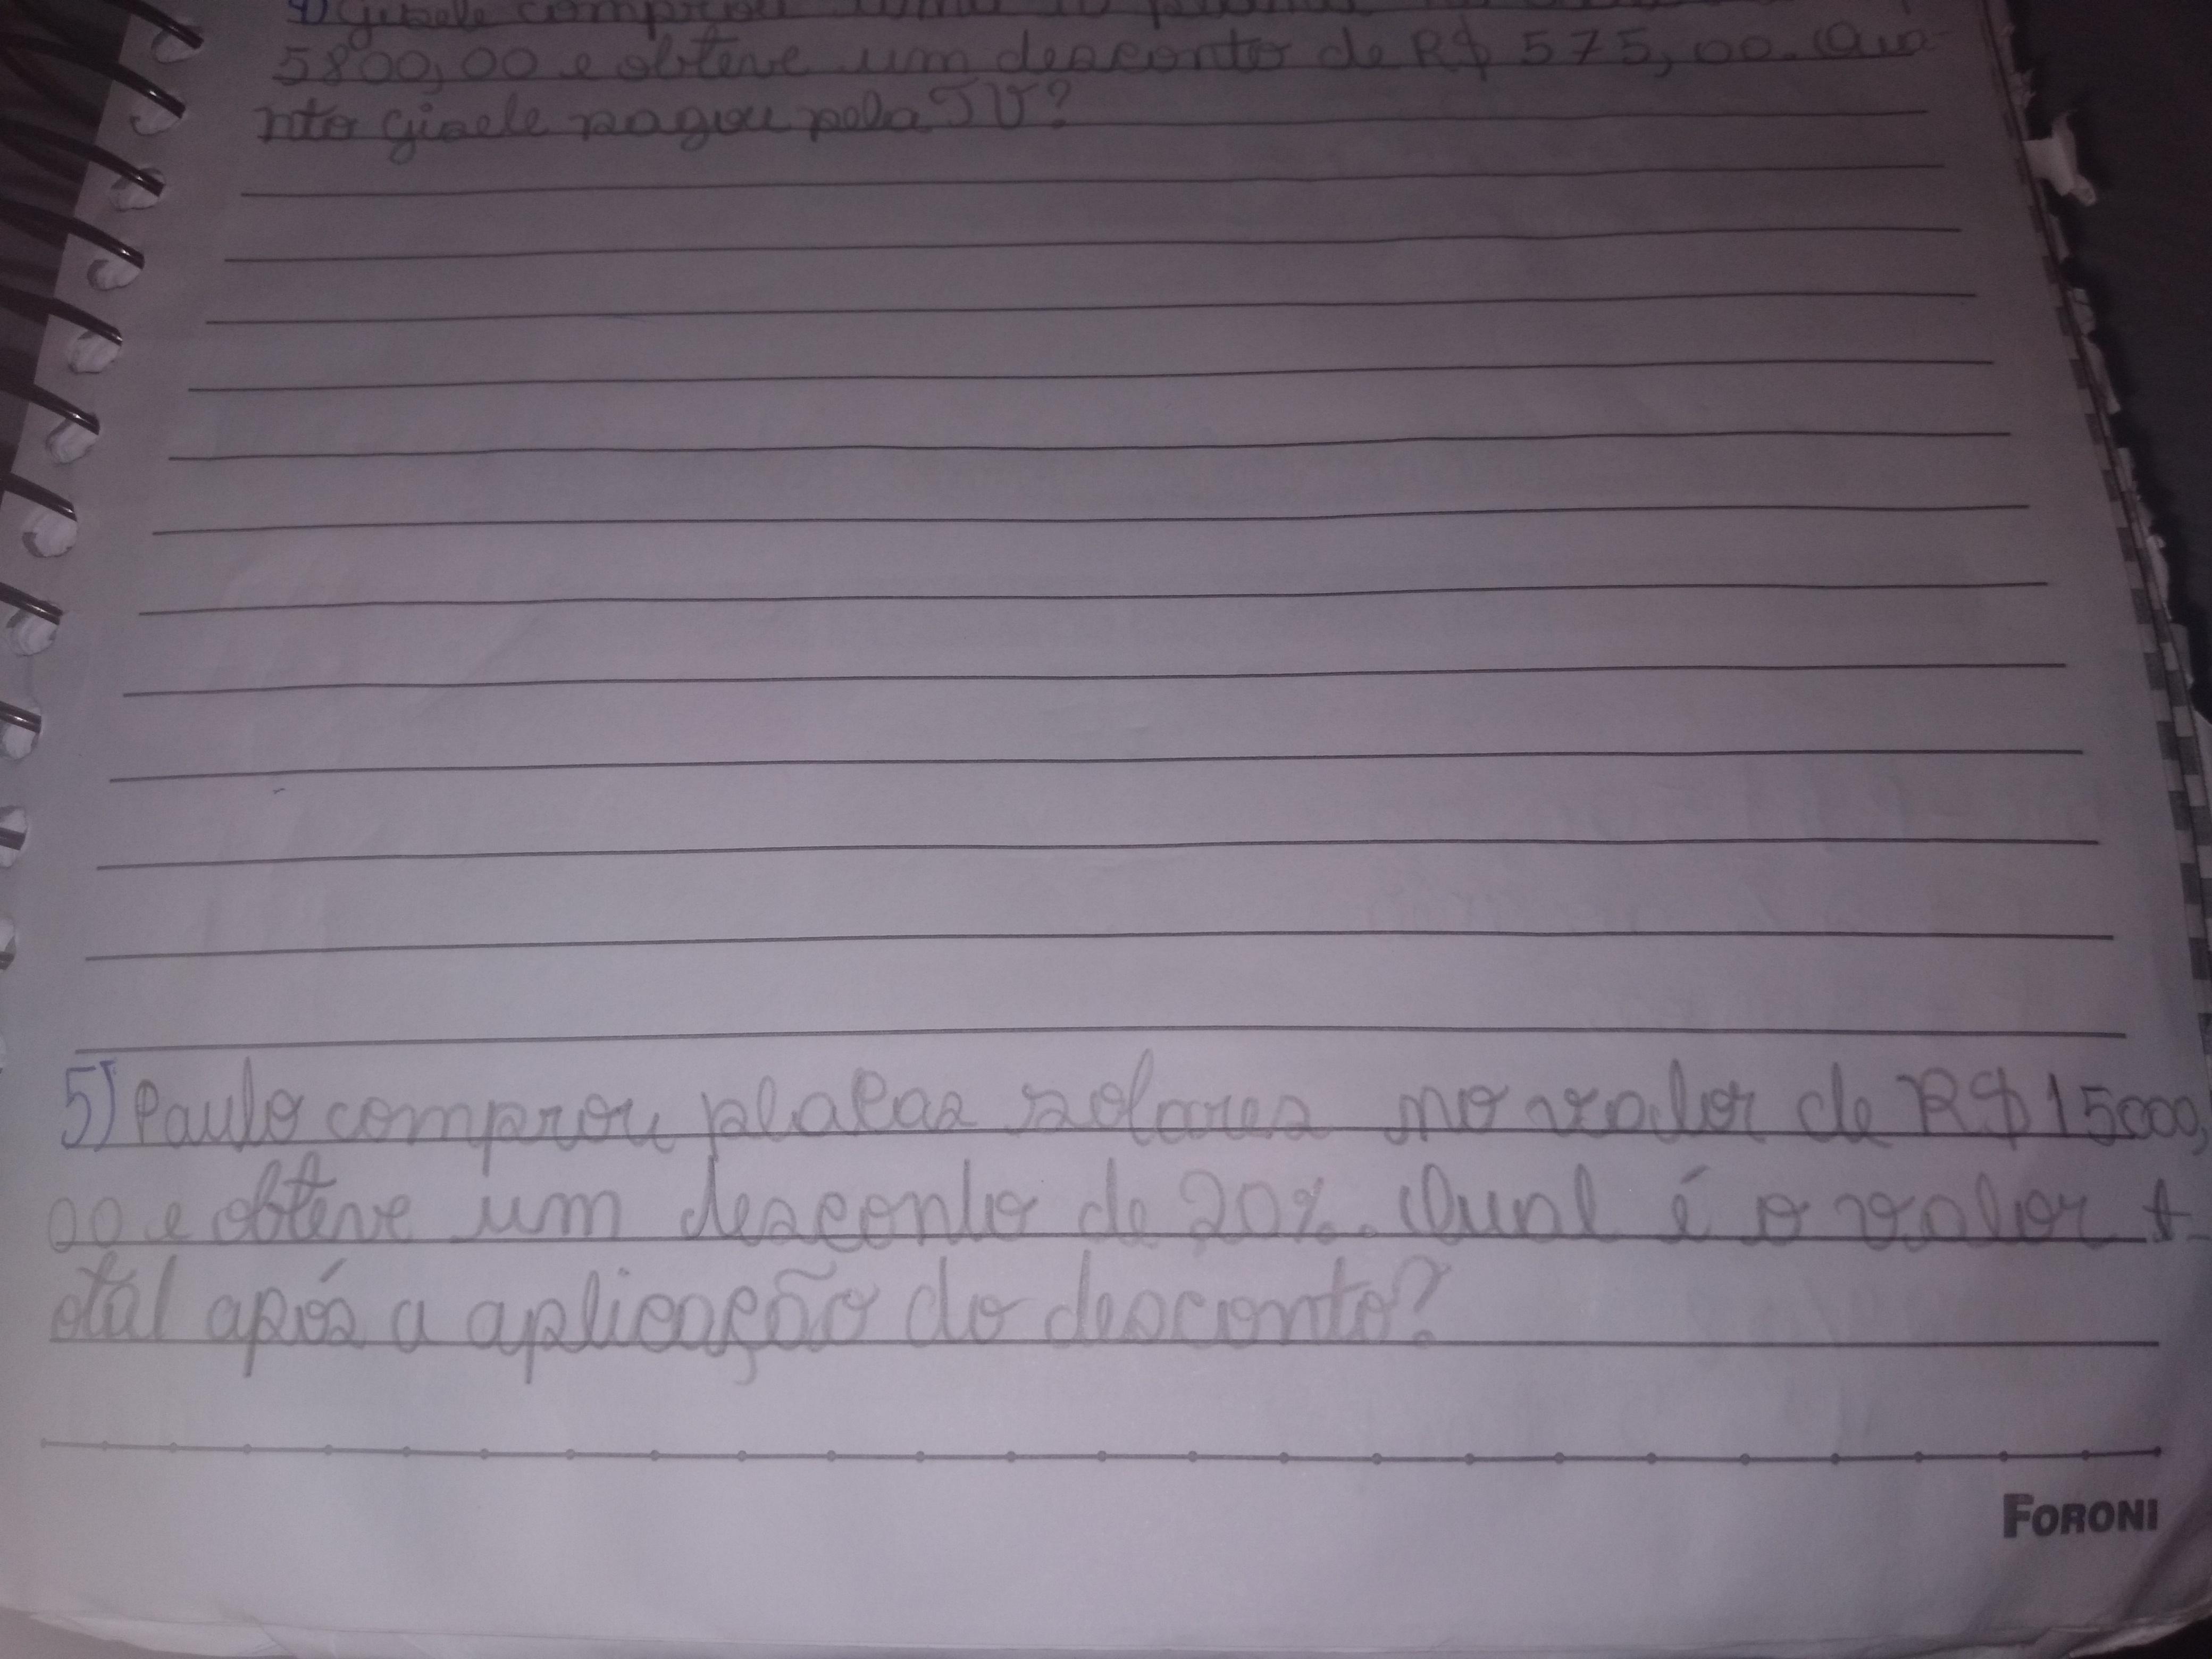 4) Gisele comprou uma
5800,00 e obteve um desconto de R$ 575,00. Qua-
nto Gisele pagou pela TV?
5) Paulo comprou placas solares no valor de R$ 15000,
00 e obteve um desconto de 20%. Qual é o valor t-
otal após a aplicação do desconto?
FORONI